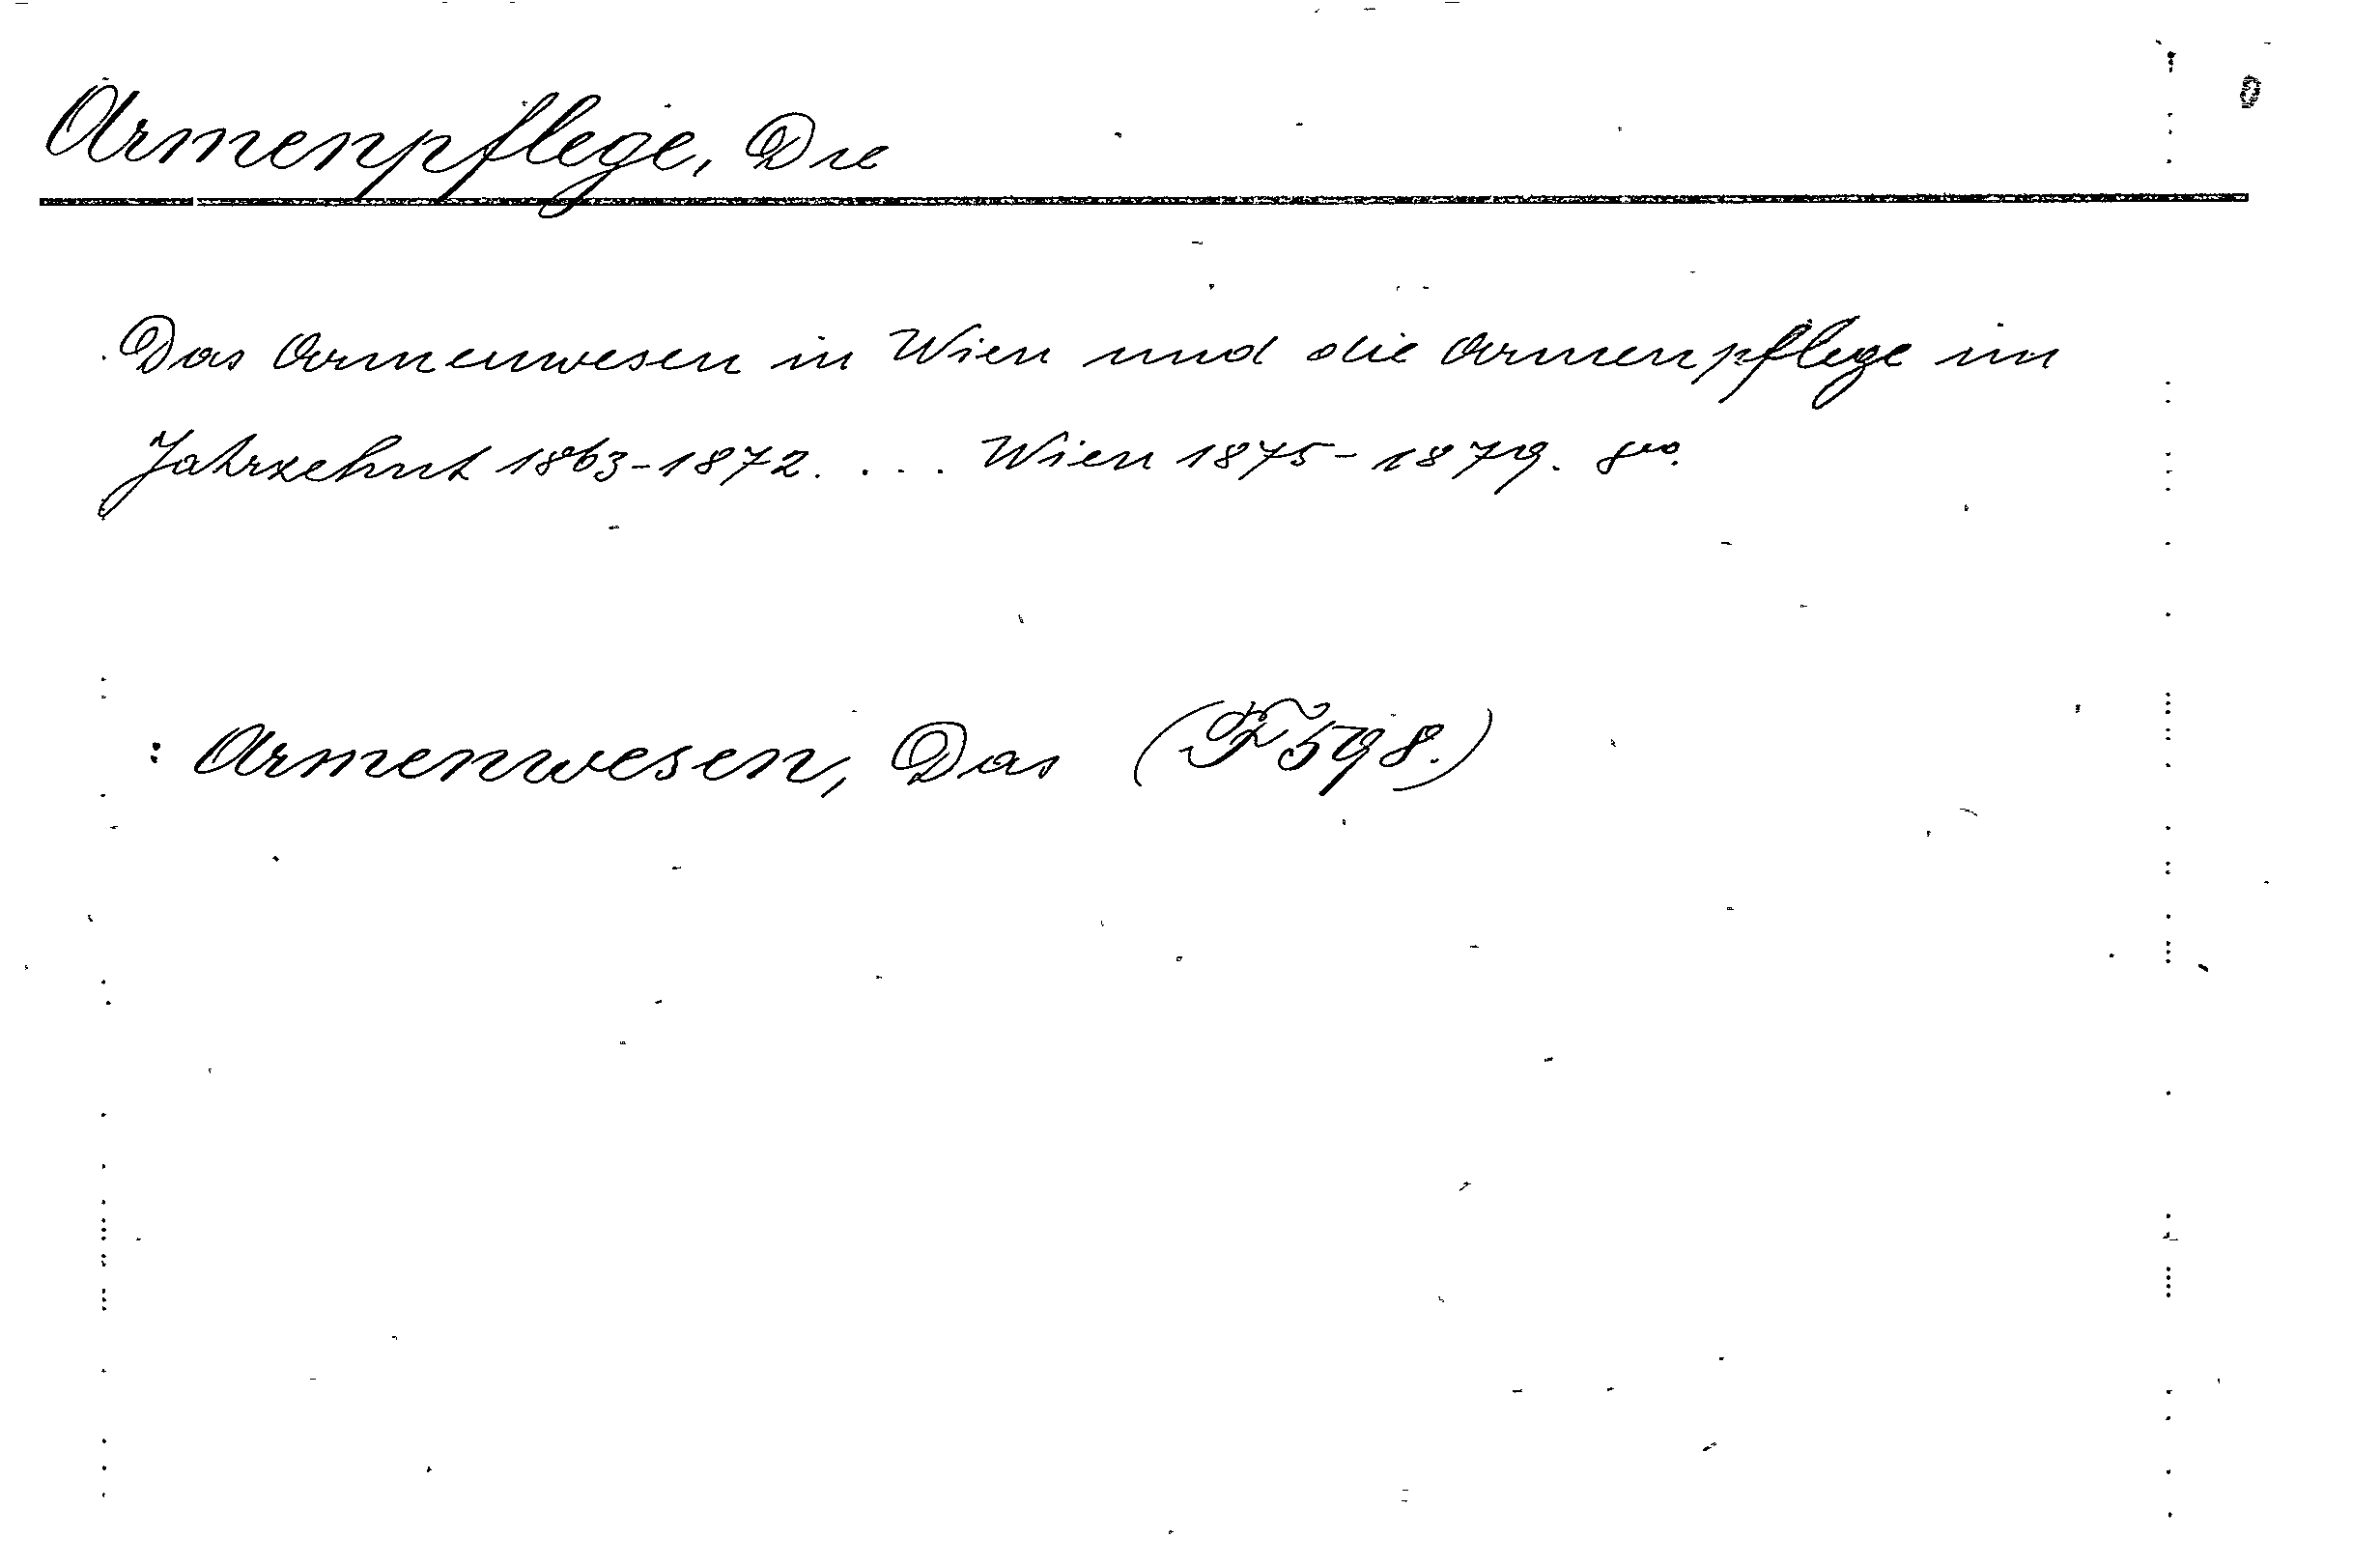 Armenpflege, Die
Das Armenwesen in Wien und die Armenpflege im
Jahrzehnt 1863-1872. ... Wien 1875-1879. 8vo.
: Armenwesen, Das (F 598.)